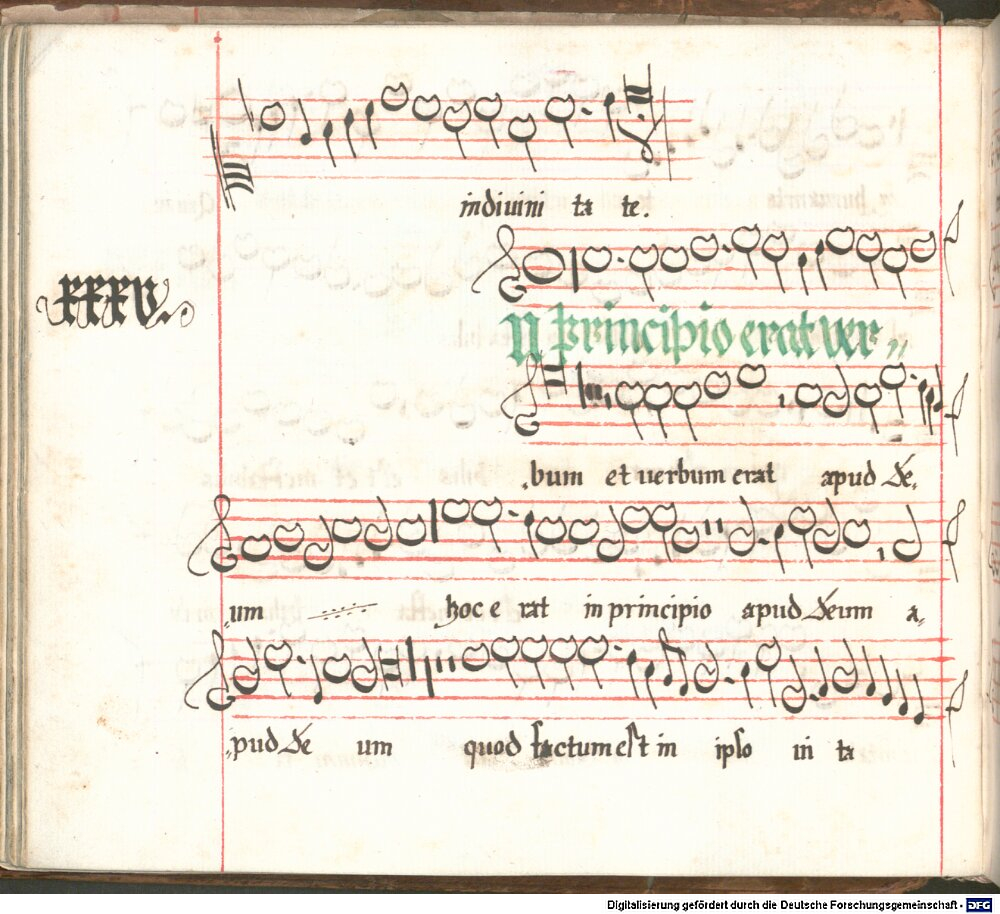 indiuini ta te.
xxxv.
N principio erat uer
bum et uerbum erat apud de,
um hoc e rat in principio apud deum a,
pud de um quod factum est in ipso ui ta
Digitalisierung gefördert durch die Deutsche Forschungsgemeinschaft - DFG